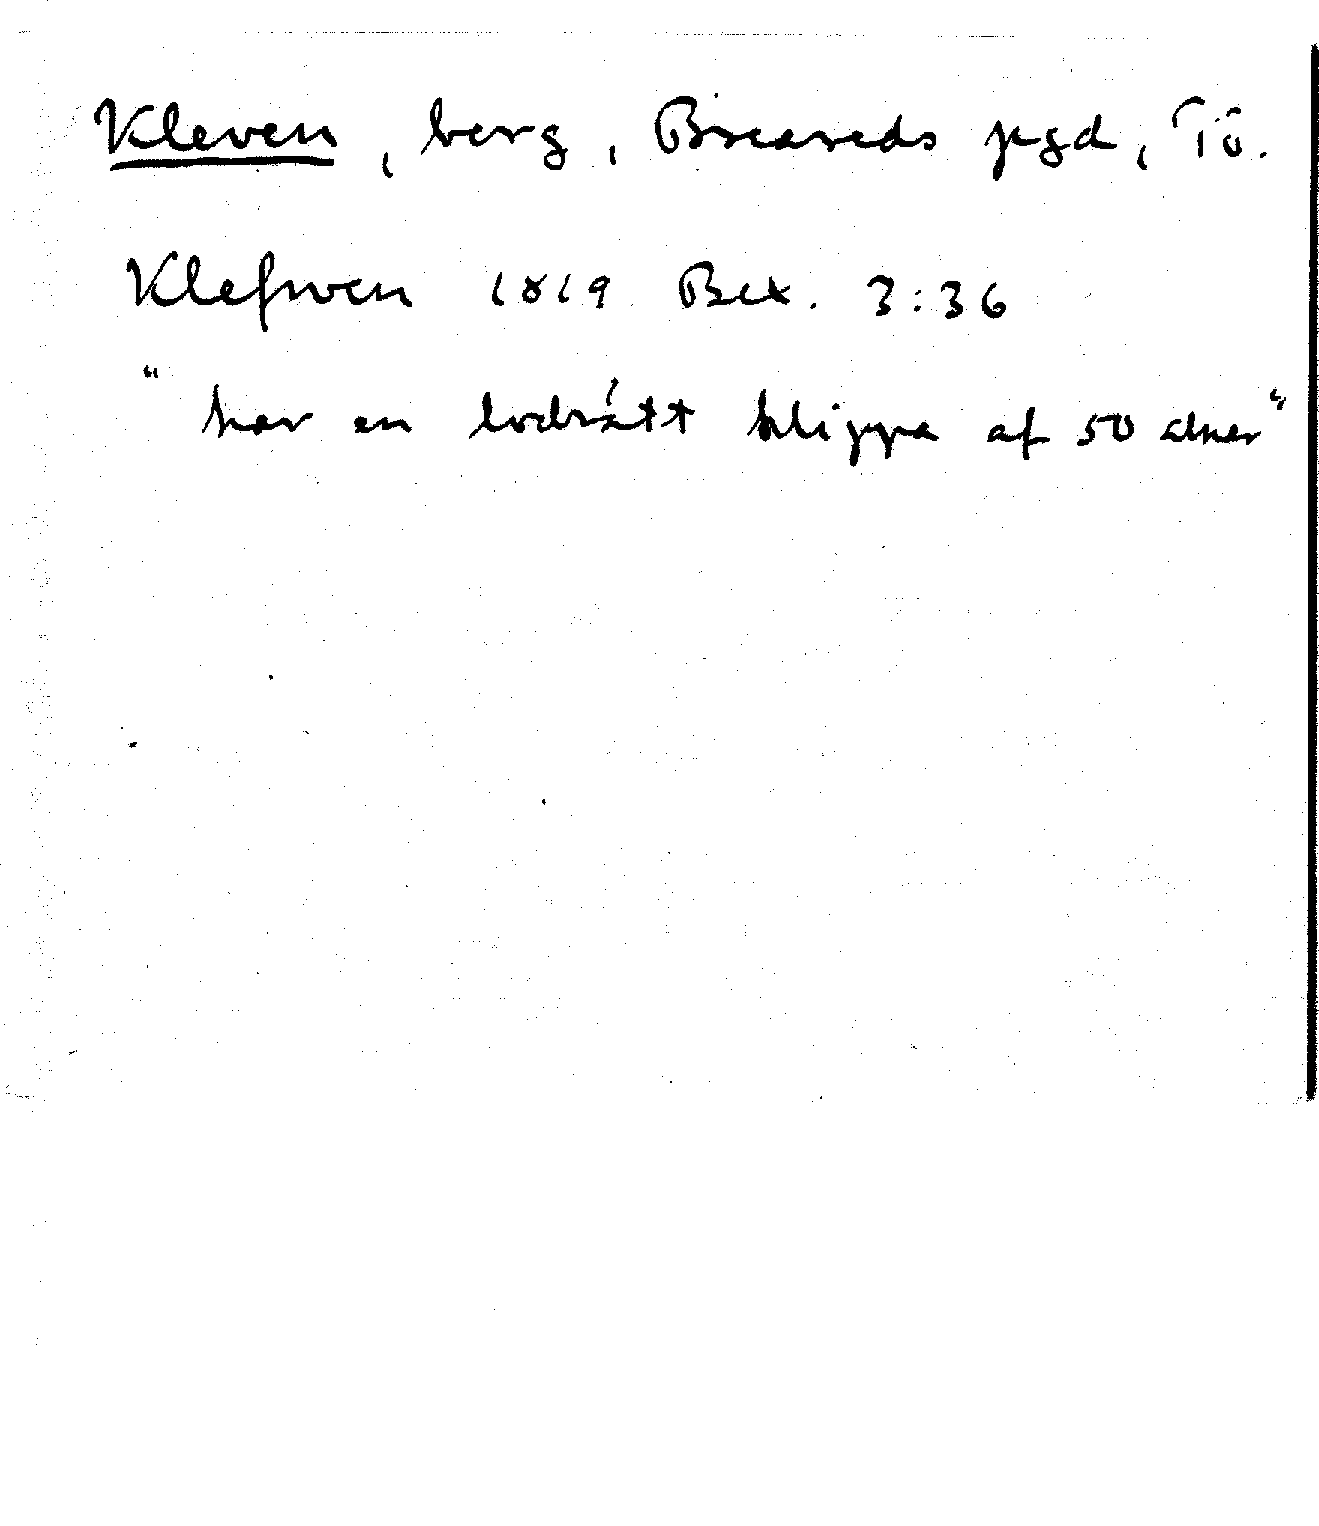 Kleven, berg, Breareds pgd, Tö.
Klefwen 1819 Bex. 3:36
"har en lodrätt klippa af 50 alner"